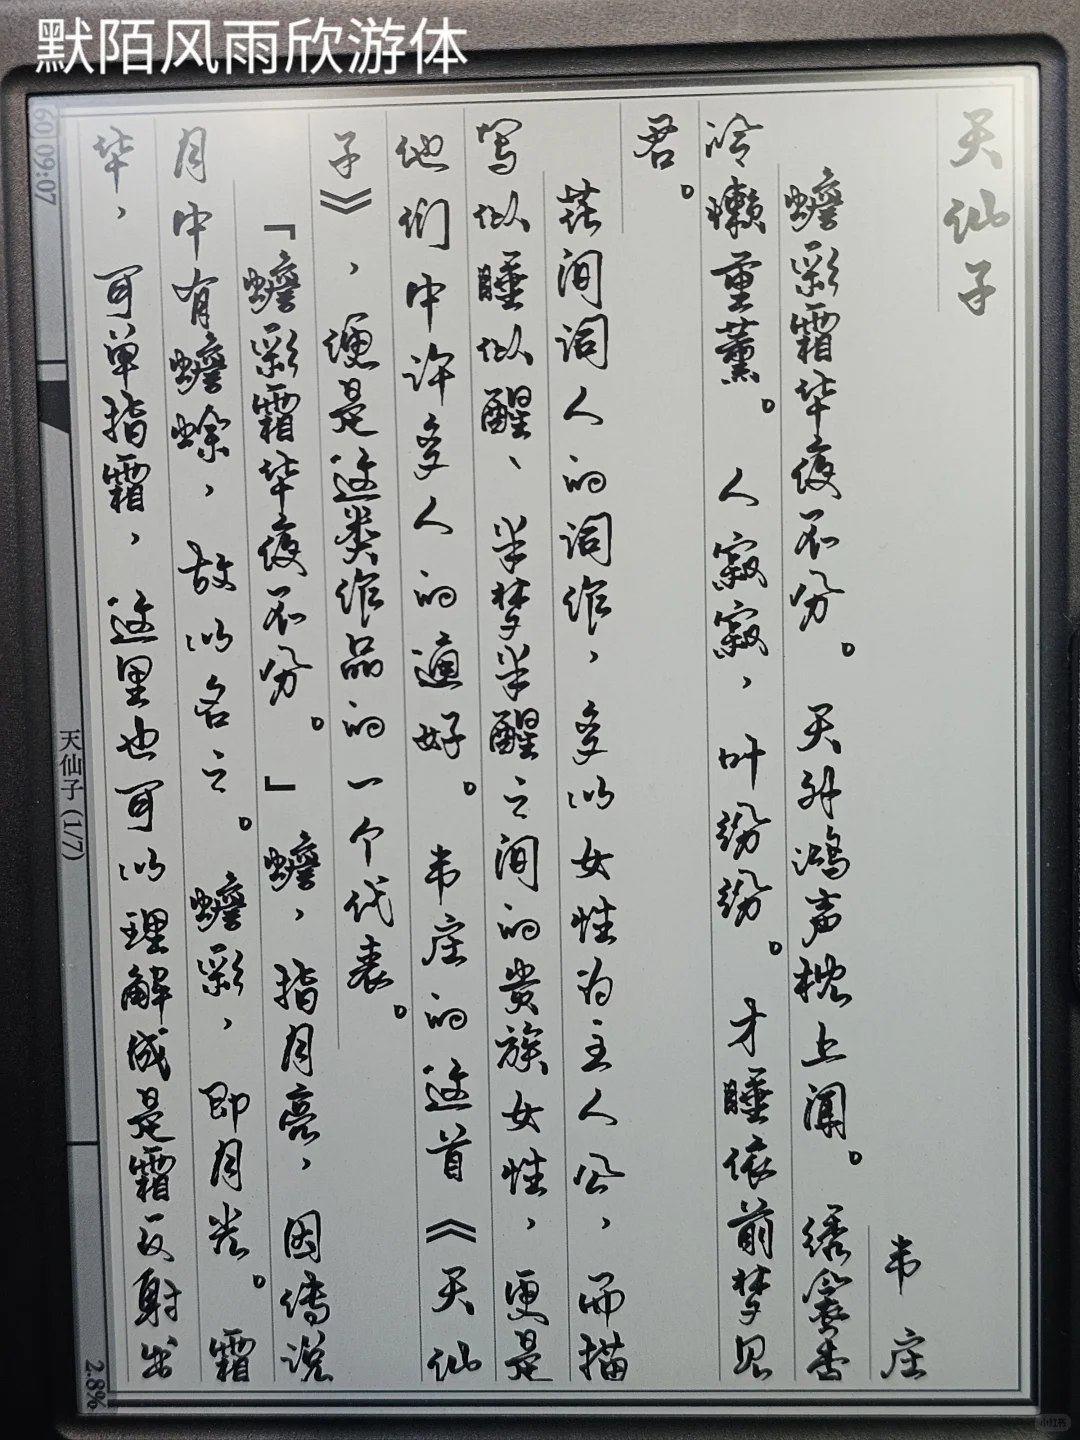 默陌风雨欣游体
天仙子
韦庄
蟾彩霜华夜不分。天外鸿声枕上闻。绣衾香
冷懒重薰。人寂寂，叶纷纷。才睡依前梦见
君。
花间词人的词作，多以女性为主人公，而描
写似睡似醒、半梦半醒之间的贵族女性，更是
他们中许多人的适好。韦庄的这首《天仙
子》，便是这类作品的一个代表。
「蟾彩霜华夜不分。」蟾，指月亮，因传说
月中有蟾蜍，故以名之。蟾彩，即月光。霜
华，可单指霜，这里也可以理解成是霜反射出
60 09:07
天仙子 (1/7)
2.8%
小红书